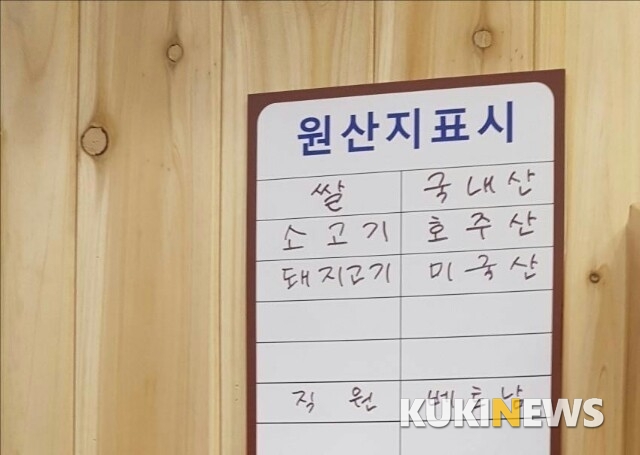 원산지표시
쌀 국내산
소고기 호주산
돼지고기 미국산
직원 베트남
KUKINEWS